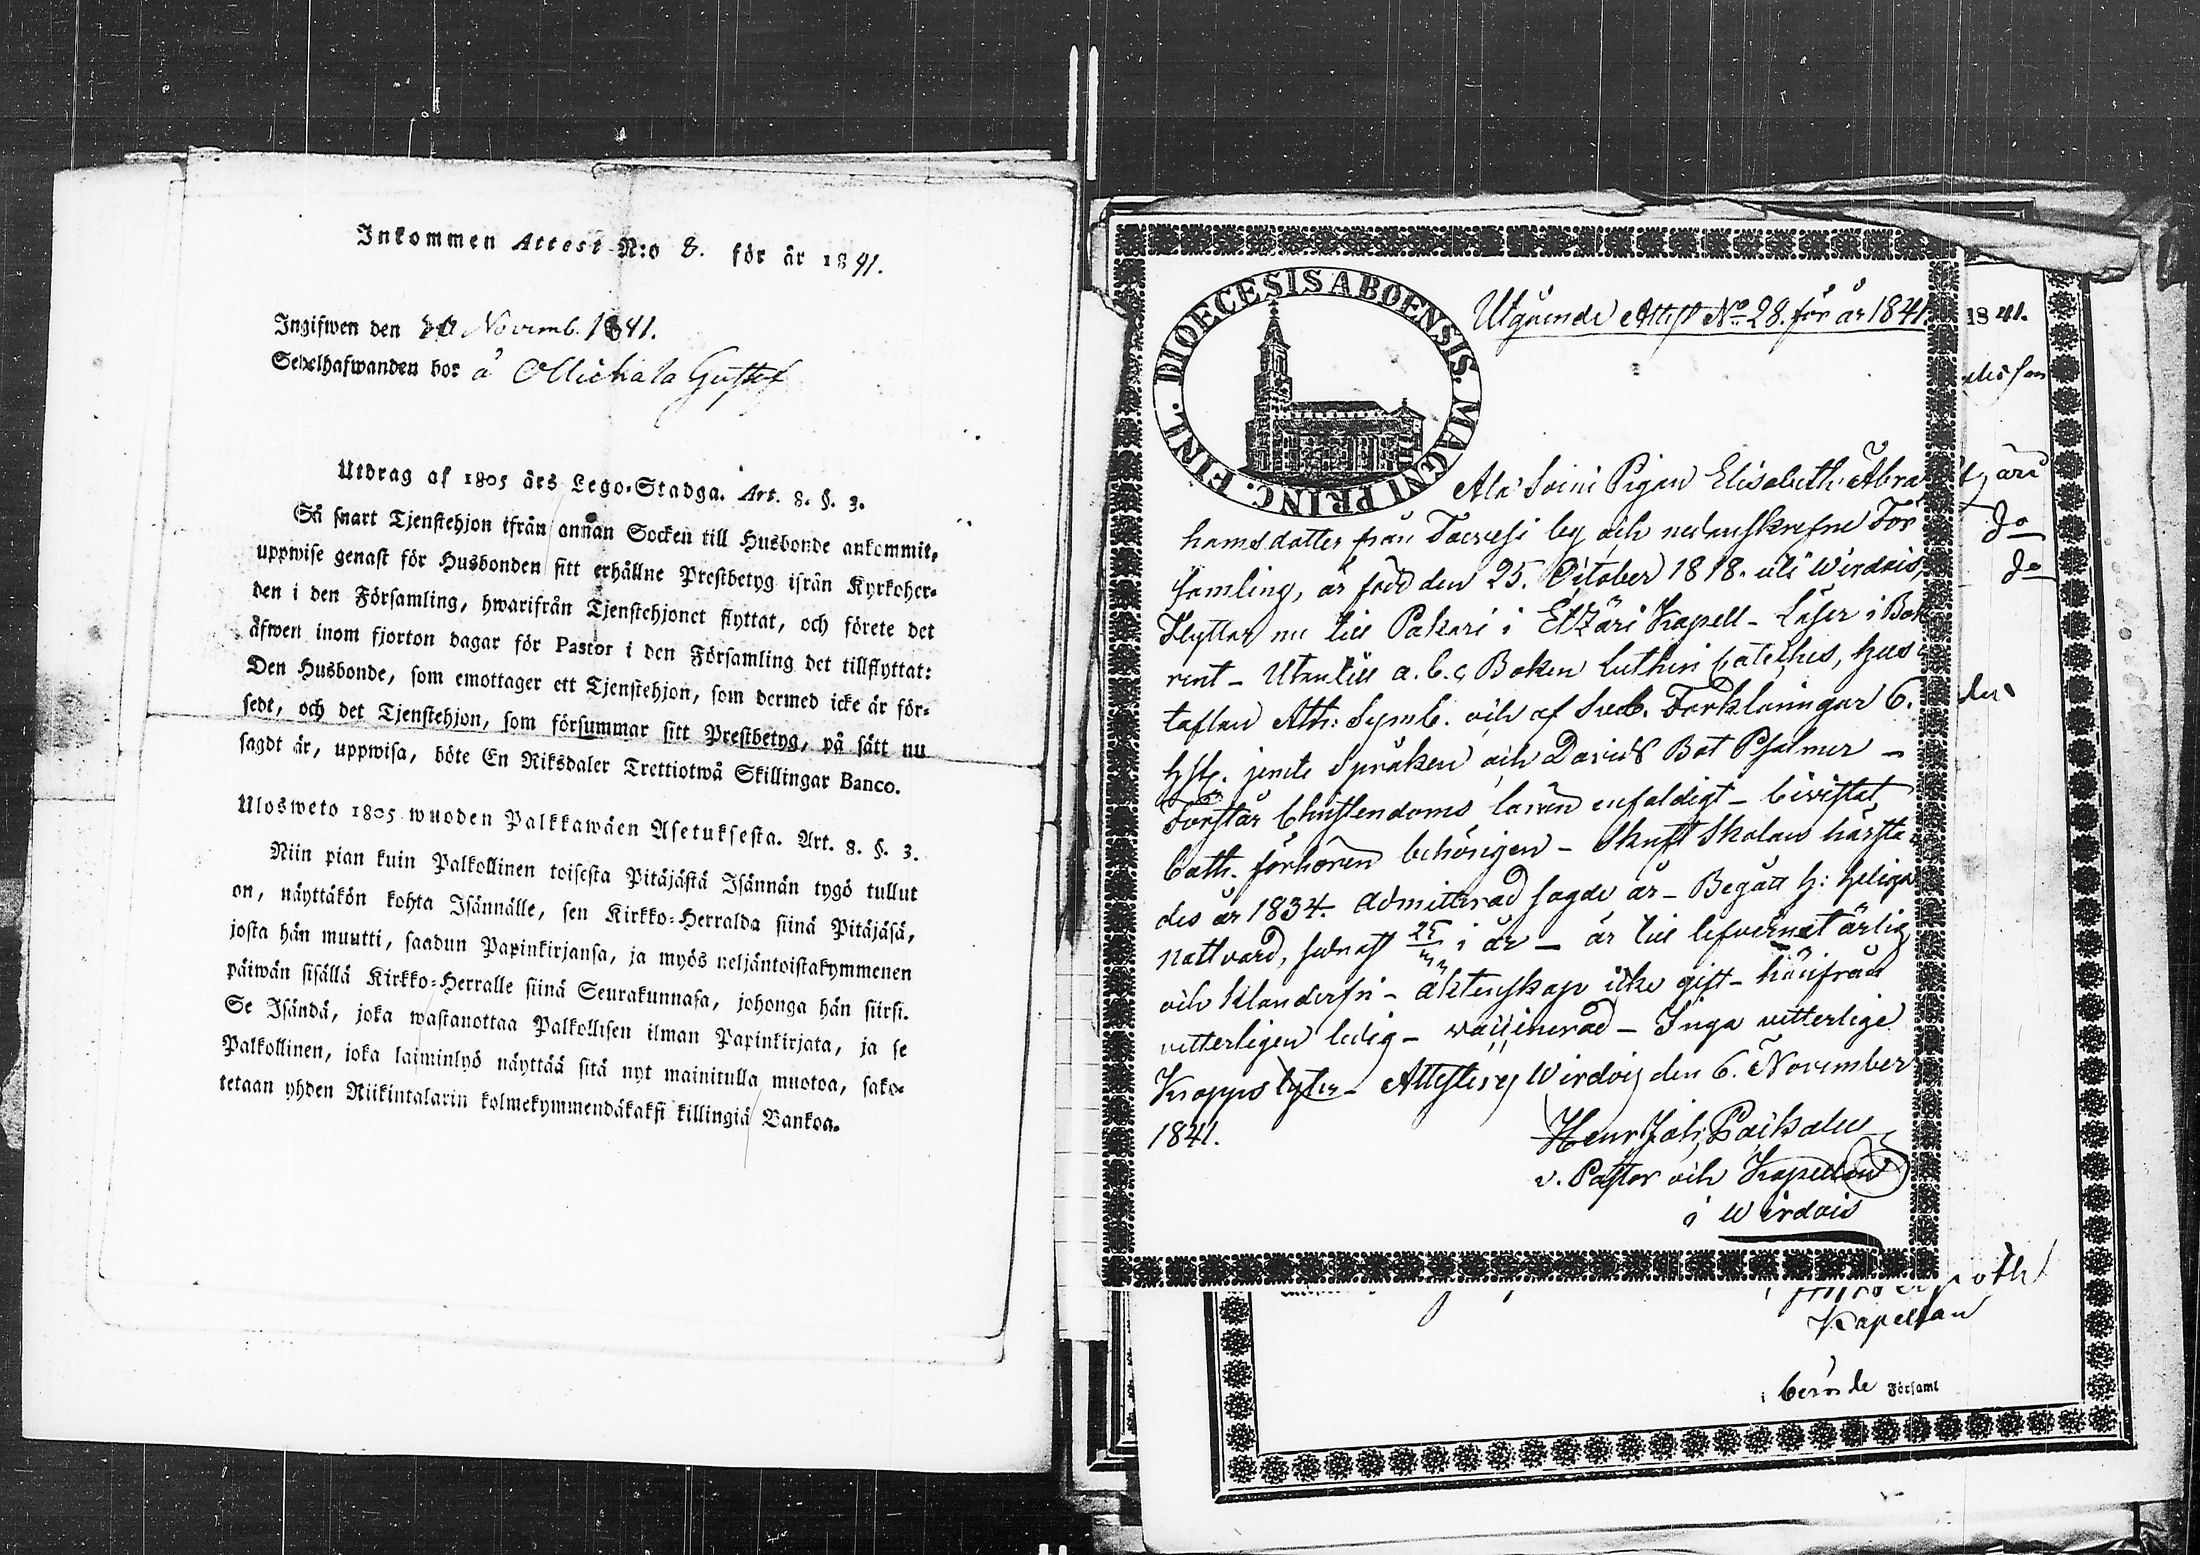 Inkommen Attest N:o 8. för år 1841.
Ingifwen den 20 Novemb. 1841.
Sedelhafwanden bor å Ollickala Gustaf
Utdrag af 1805 års Lego-Stadga. Art. 8. §. 3.
Så snart Tjenstehjon ifrån annan Socken till Husbonde ankommit,
uppwise genast för Husbonden sitt erhållne Prestbetyg ifrån Kyrkoher-
den i den Församling, hwarifrån Tjenstehjonet flyttat, och förete det
äfwen inom fjorton dagar för Pastor i den Församling det tillflyttat:
Den Husbonde, som emottager ett Tjenstehjon, som dermed icke är för-
sedt, och det Tjenstehjon, som försummar sitt Prestbetyg, på sätt nu
sagdt är, uppwisa, böte En Riksdaler Trettiotwå Skillingar Banco.
Ulosweto 1805 wuoden Palkkawäen Asetuksesta. Art. 8. §. 3.
Niin pian kuin Palkollinen toisesta Pitäjästä Isännän tygö tullut
on, näyttäkön kohta Isännälle, sen Kirkko-Herralda siinä Pitäjäsä,
josta hän muutti, saadun Papinkirjansa, ja myös neljäntoistakymmenen
päiwän sisällä Kirkko-Herralle siinä Seurakunnasa, johonga hän siirsi.
Se Isändä, joka wastanottaa Palkollisen ilman Papinkirjata, ja se
Palkollinen, joka laiminlyö näyttää sitä nyt mainitulla muotoa, sako-
tetaan yhden Riikintalarin kolmekymmendäkaksi killingiä Bankoa.
DIOECESIS ABOENSIS. MAGNI PRINC. FINL.
Utgående Attest No 28. för år 1841.
Ala Soini Pigan Elisabeth Abra
hamsdotter från by och nedanskrefne För
samling, är född den 25. October 1818. uti Wirdois,
Flyttar nu till Pakari i Etzäri Kapell - Läser i Bok
rent - Utantill a.b.c Boken Lutheri Cateches, Hus
taflan Ath: Symb. och af Sveb. Förklaringar 6.
Hst. jemte Språken och Davids Bot Psalmer -
Förstår Christendoms läran enfaldigt - bevistat
Cath. förhören behörigen - Skrift Skolan härsta
des år 1834. Admitterad sagde år - Begått H: Heliga
nattvard, senast 25 i år - är till lefvernet ärlig
och klanderfri - äktenskap icke gift - härifrån
vitterligen ledig - vaccinerad - Inga vitterlige
Kropps lyten - Attesterej Wirdois den 6. November
1841.
Henr Joh: Paikalen
v. Pastor och Kapellan
i Wirdois
1841.
Do
Do
Kapellan
berörde Församl